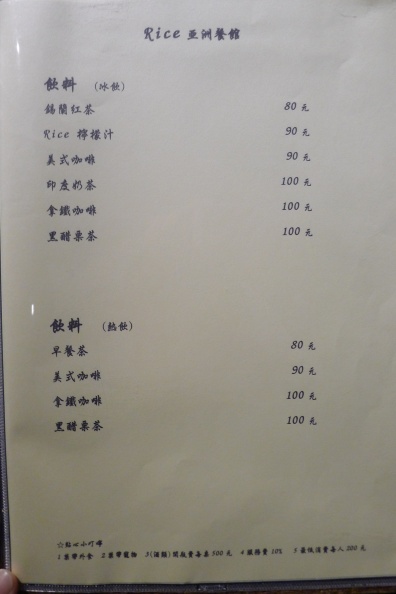 Rice 亚洲餐館
飲料 (冰飲)
錫蘭紅茶 80 元
Rice 檸檬汁 90 元
美式咖啡 90 元
印度奶茶 100 元
拿鐵咖啡 100 元
黑醋栗茶 100 元
飲料 (熱飲)
早餐茶 80 元
美式咖啡 90 元
拿鐵咖啡 100 元
黑醋栗茶 100 元
☆貼心小叮嚀
1 禁帶外食 2 禁帶寵物 3(酒類)開瓶費每桌 500 元 4 服務費 10% 5 最低消費每人 200 元